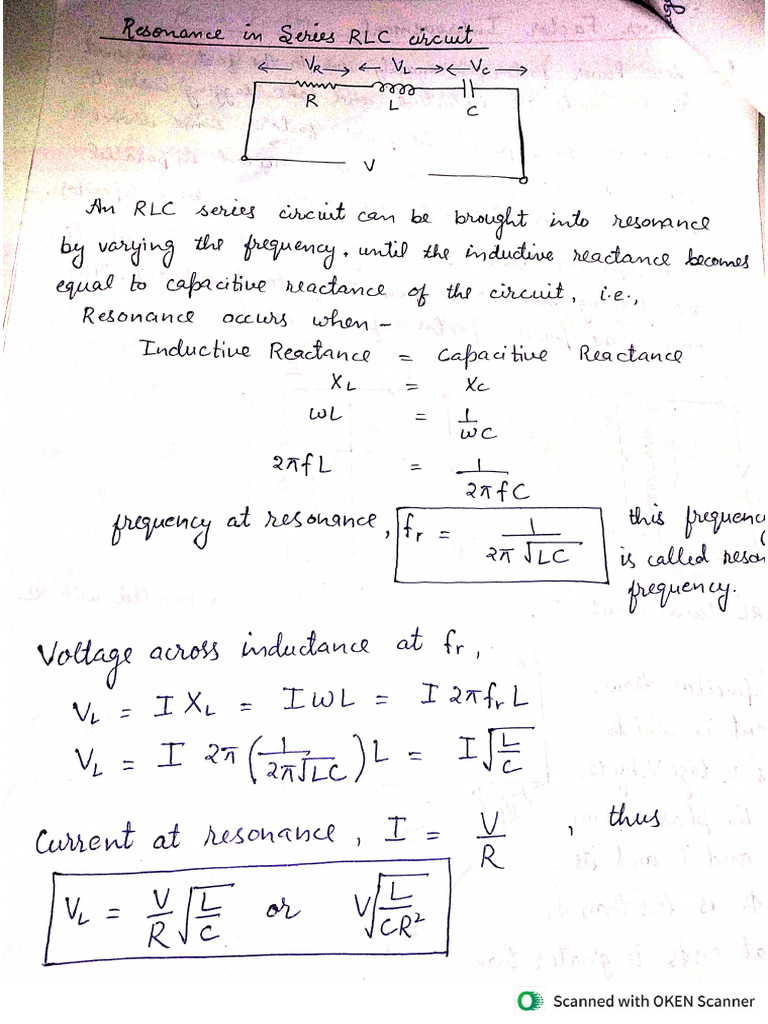 Resonance in Series RLC circuit
VR VL VC
R L C
V
An RLC series circuit can be brought into resonance
by varying the frequency, until the inductive reactance becomes
equal to capacitive reactance of the circuit, i.e.,
Resonance occurs when -
Inductive Reactance = Capacitive Reactance
XL = XC
ωL = 1/ωC
2πfL = 1/2πfC
frequency at resonance, fr = 1/2π√LC this frequenc
is called reson
frequency.
Voltage across inductance at fr,
VL = I XL = I ωL = I 2πfr L
VL = I 2π(1/2π√LC)L = I√L/C
Current at resonance, I = V/R, thus
VL = V/R √L/C or V√L/CR²
Scanned with OKEN Scanner